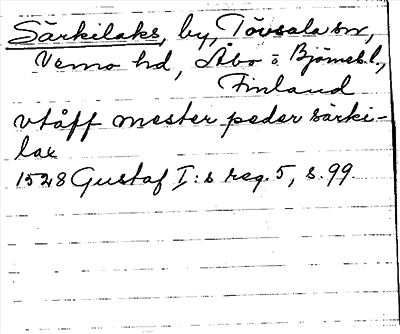 Särkilaks, by, Tövsala sn,
Vemo hd, Åbo o. Björneb.l.,
Finland
vtåff mester peder särki-
lax
1528 Gustaf I:s reg. 5, s. 99.